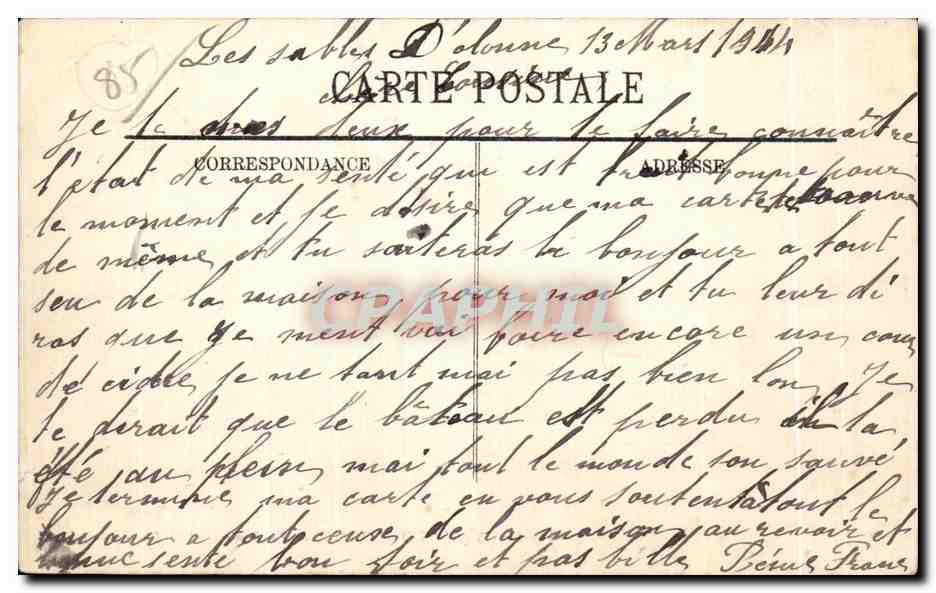 85
Les sables D'olonne 13 Mars 1914
CARTE POSTALE
Je te deux pour te faire connaître
CORRESPONDANCE ADRESSE
l'état de ma senté qui est bonne pour
le moment et je désire que ma carte te
de même et tu sonteras bonjour a tout
seu de la maison pour moi et tu leur di
ras que je ment vai boire encore un cou
de cidre je ne tant mai pas bien lon Je
te dirait que le bâteau est perdu il la
été au plein mai tout le monde son sauvé
Je termine ma carte en vous soutentatout le
bonjour a tout ceux de la maison au revoir et
senté bon foir et pas bille
CPAPHIL